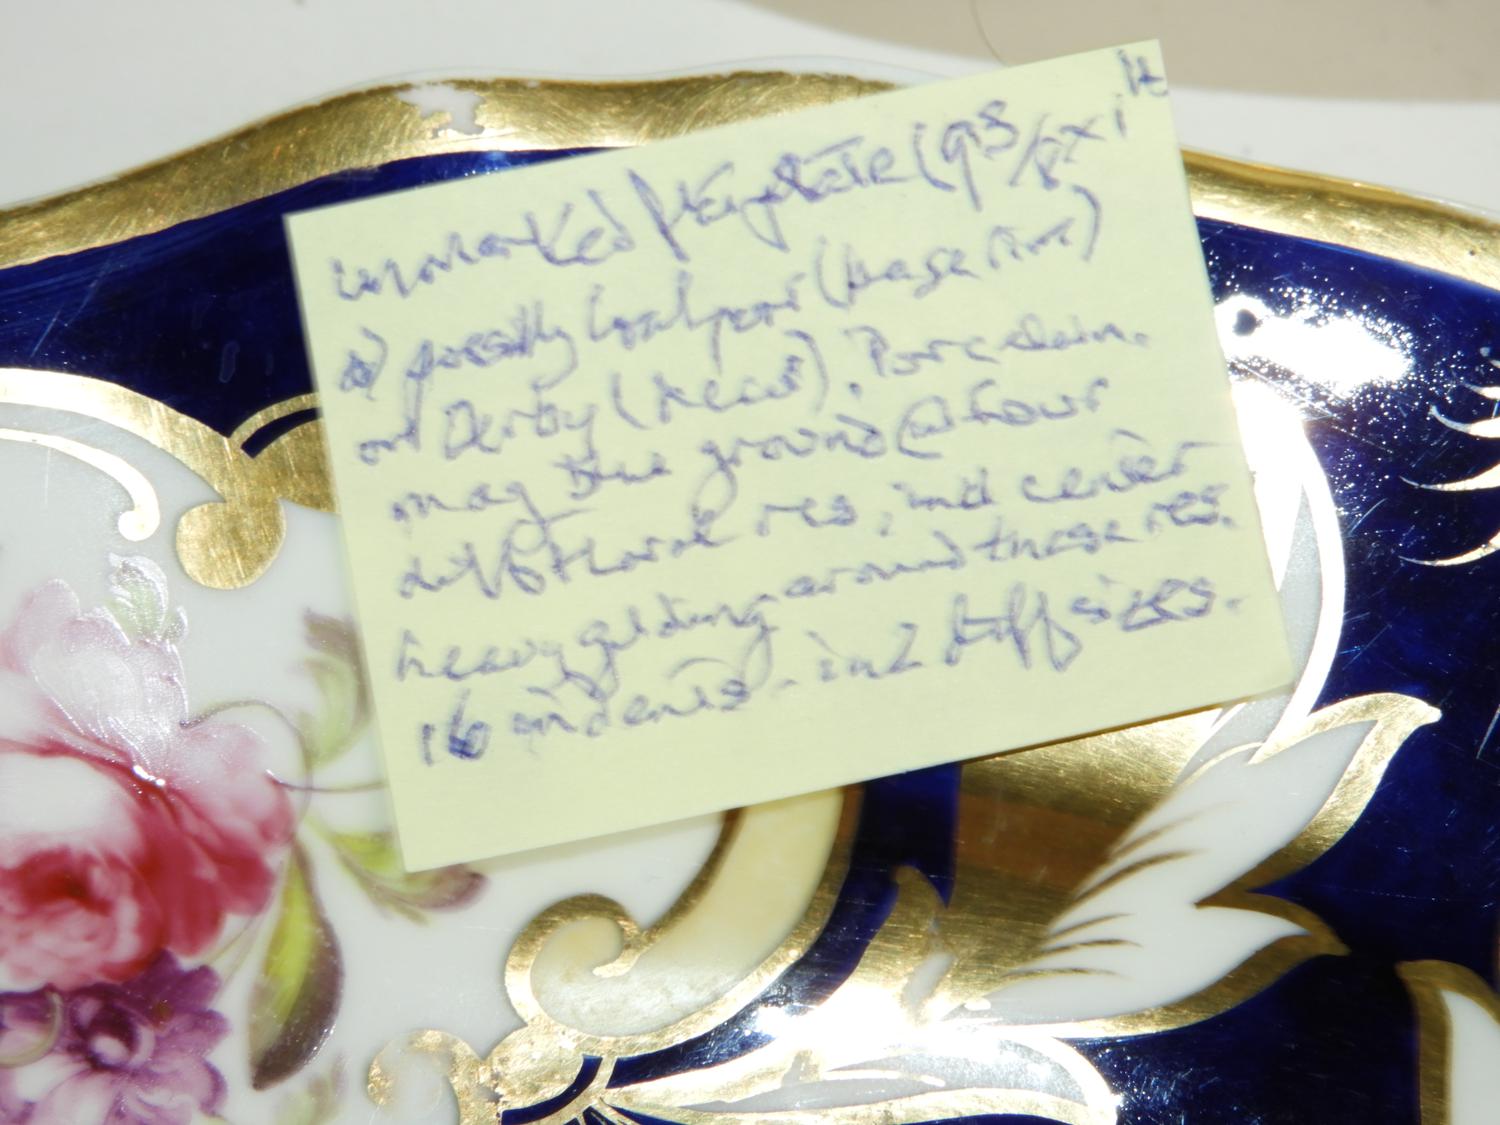 unmarked plate (9 3/8 x 1 1/2
possibly Coalport (
or Derby (). Porcelain.
blue ground @ four
diff floral res, incl center
heavy gilding around these res.
16 indents - in 2 diff sizes.